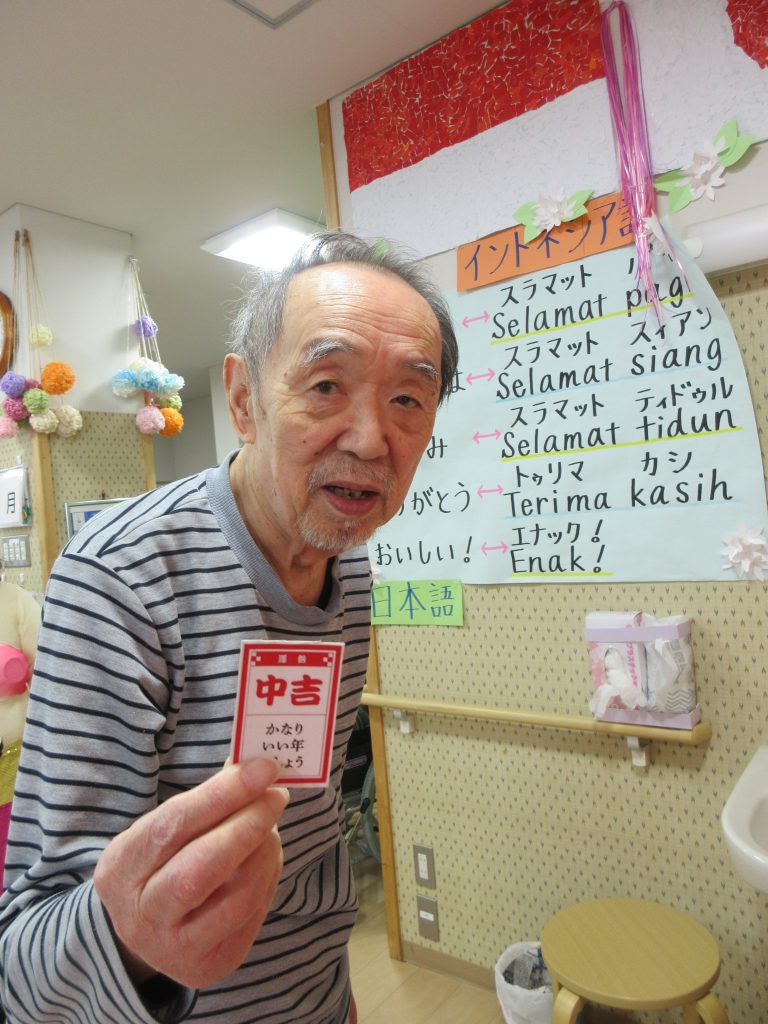 インドネシア語
スラマット
Selamat pagi
スラマット スィアン
Selamat siang
スラマット ティドゥル
Selamat tidun
み
がとう
トゥリマ カシ
Terima kasih
おいしい!
エナック!
Enak!
日本語
月
運勢
中吉
かなり
いい年
しょう